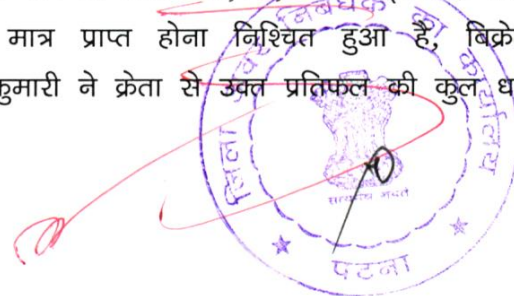 मात्र प्राप्त होना निश्चित हुआ है, बिक्रे
कुमारी ने क्रेता से उक्त प्रतिफल की कुल ध
जिला अवर निबंधक का कार्यालय
सत्यमेव जयते
पटना